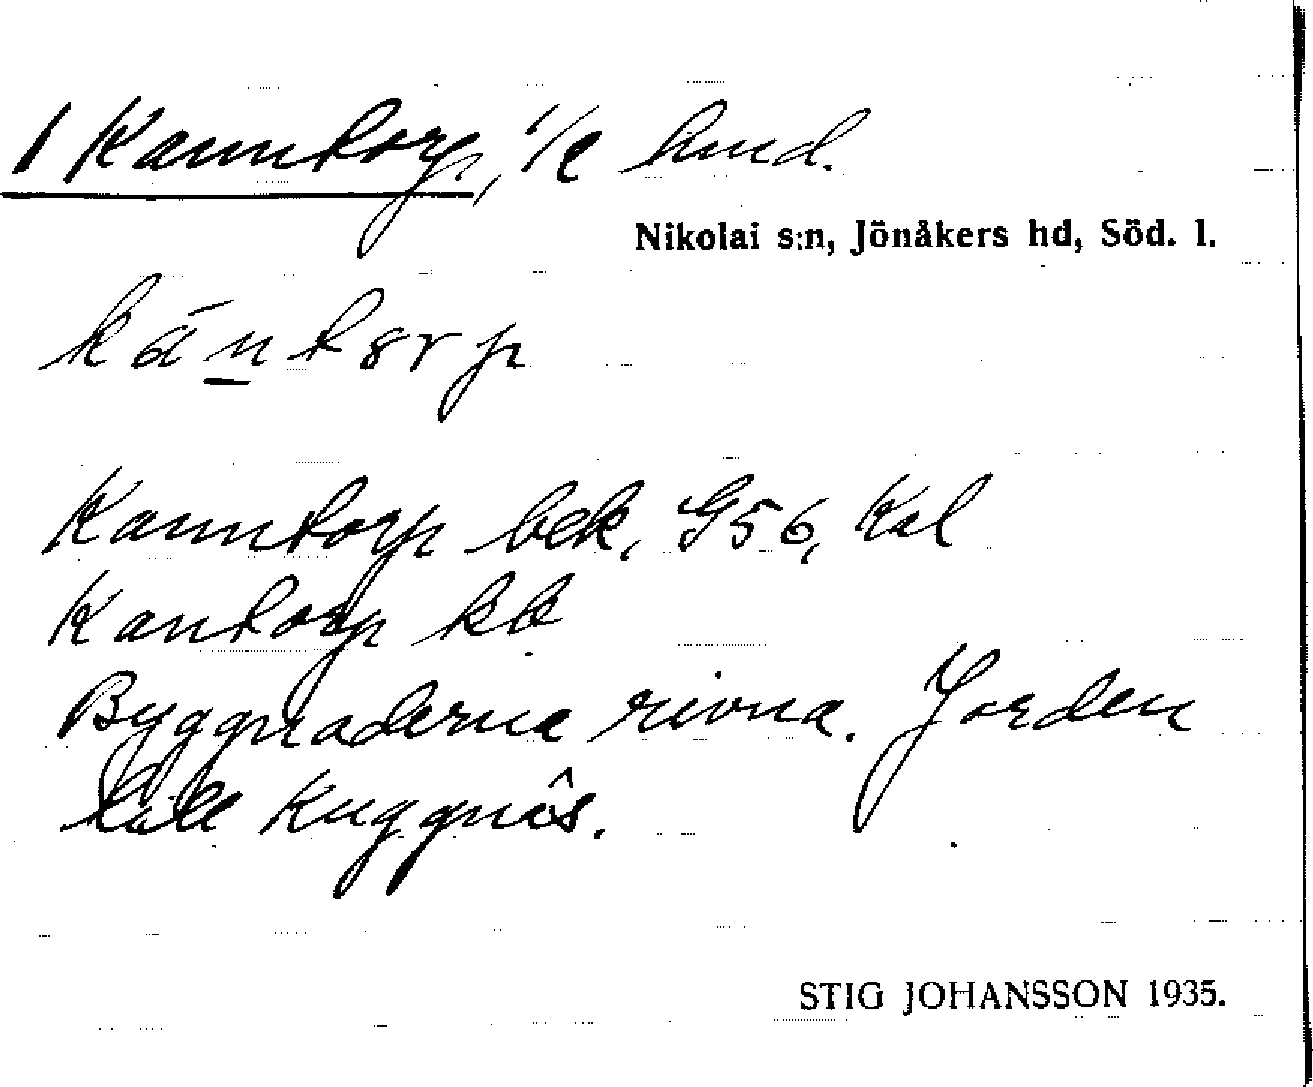 1 Kanntorp, 1/2 hmd.
Nikolai s:n, Jönåkers hd, Söd. l.
kántorp
Kanntorp bek, G56, Kal
Kantorp kb
Byggnaderna rivna. Jorden
till Kuggnäs.
STIG JOHANSSON 1935.